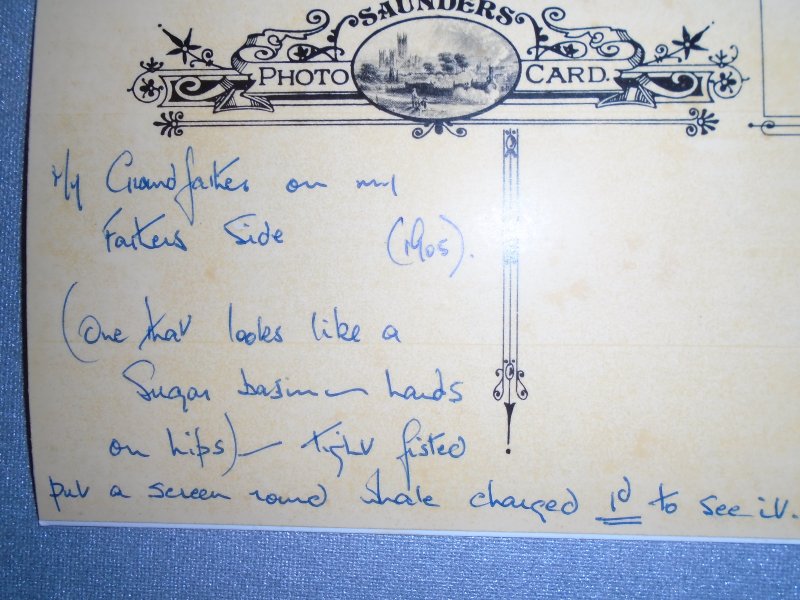 SAUNDERS
PHOTO CARD.
My Grandfather on my
Fathers Side (1905).
(One that looks like a
Sugar basin — hands
on hips) — tight fisted
put a screen round whale charged 1d to see it.